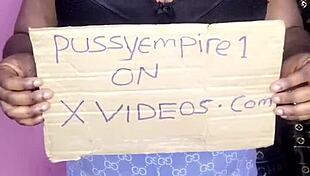 pussyempire1
ON
XVIDEOS.Com